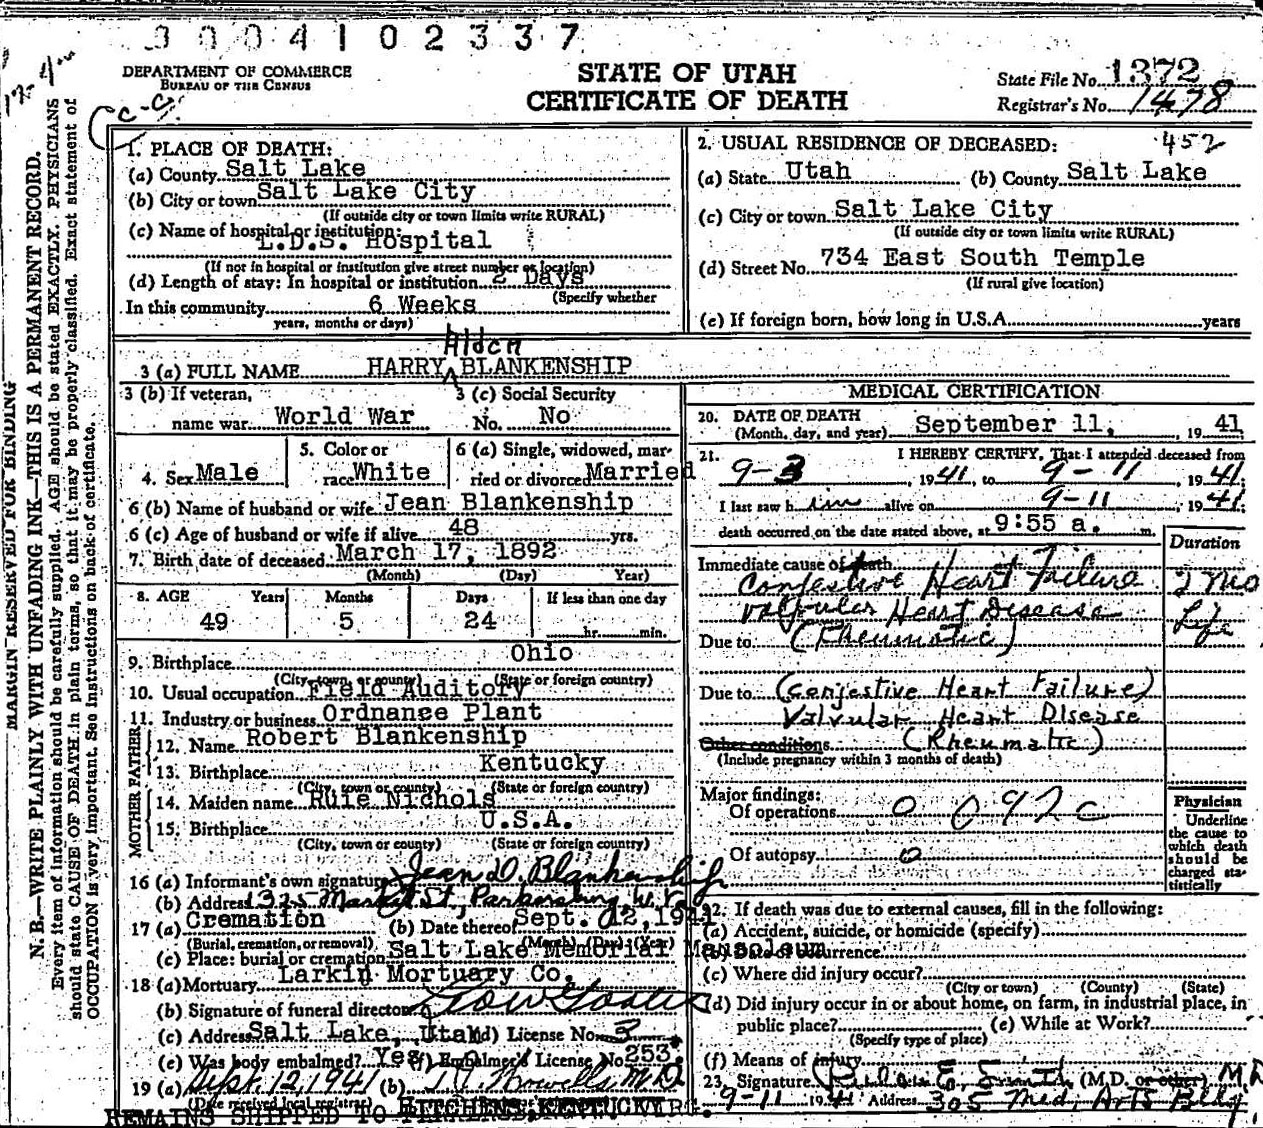 0 0 0 4 1 0 2 3 3 7
DEPARTMENT OF COMMERCE
BUREAU OF THE CENSUS
STATE OF UTAH
CERTIFICATE OF DEATH
State File No. 1372
Registrar's No. 1478
MARGIN RESERVED FOR BINDING
N. B.—WRITE PLAINLY WITH UNFADING INK—THIS IS A PERMANENT RECORD.
Every item of information should be carefully supplied. AGE should be stated EXACTLY. PHYSICIANS
should state CAUSE OF DEATH in plain terms, so that it may be properly classified. Exact statement of
OCCUPATION is very important. See instructions on back of certificate.
1. PLACE OF DEATH:
(a) County Salt Lake
(b) City or town Salt Lake City
(If outside city or town limits write RURAL)
(c) Name of hospital or institution:
L.D.S. Hospital
(If not in hospital or institution give street number or location)
(d) Length of stay: In hospital or institution 2 Days
(Specify whether
In this community 6 Weeks
years, months or days)
2. USUAL RESIDENCE OF DECEASED: 452
(a) State Utah (b) County Salt Lake
(c) City or town Salt Lake City
(If outside city or town limits write RURAL)
(d) Street No. 734 East South Temple
(If rural give location)
(e) If foreign born, how long in U.S.A. years
Alden
3 (a) FULL NAME HARRY BLANKENSHIP
3 (b) If veteran,
name war World War
3 (c) Social Security
No. No
4. Sex Male
5. Color or
race White
6 (a) Single, widowed, mar-
ried or divorced Married
6 (b) Name of husband or wife Jean Blankenship
6 (c) Age of husband or wife if alive 48 yrs.
7. Birth date of deceased March 17, 1892
(Month) (Day) Year)
8. AGE Years Months Days If less than one day
49 5 24 hr. min.
9. Birthplace Ohio
(City, town, or county) (State or foreign country)
10. Usual occupation Field Auditory
11. Industry or business Ordnance Plant
FATHER
12. Name Robert Blankenship
13. Birthplace Kentucky
(City, town or county) (State or foreign country)
MOTHER
14. Maiden name Ruie Nichols
15. Birthplace U.S.A.
(City, town or county) (State or foreign country)
16 (a) Informant's own signature Jean D. Blankenship
(b) Address 1325 Market St., Parkersburg, W. Va.
17 (a) Cremation (b) Date thereof Sept. 12, 1941
(Burial, cremation, or removal) (Month) (Day) (Year)
(c) Place: burial or cremation Salt Lake Memorial Mausoleum
18 (a) Mortuary Larkin Mortuary Co.
(b) Signature of funeral director
(c) Address Salt Lake, Utah (d) License No. 3
(e) Was body embalmed? Yes (f) Embalmer's License No. 253
19 (a) Sept. 12, 1941 (b) Howells, M.D.
(Date received local registrar)
REMAINS SHIPPED TO
MEDICAL CERTIFICATION
20. DATE OF DEATH
(Month, day, and year) September 11, 1941
21. I HEREBY CERTIFY, That I attended deceased from
9-3, 1941, to 9-11, 1941.
I last saw him alive on 9-11, 1941.
death occurred on the date stated above, at 9:55 a. m.
Duration
Immediate cause of death
Conjestive Heart Failure 2 Mo
Valvular Heart Disease Life
Due to (Rheumatic)
Due to (Conjestive Heart Failure)
Valvular Heart Disease
Other conditions (Rheumatic)
(Include pregnancy within 3 months of death)
Major findings:
Of operations 0 092c
Of autopsy 0
Physician
Underline
the cause to
which death
should be
charged sta-
tistically
22. If death was due to external causes, fill in the following:
(a) Accident, suicide, or homicide (specify)
(b) Date of occurrence
(c) Where did injury occur?
(City or town) (County) (State)
(d) Did injury occur in or about home, on farm, in industrial place, in
public place? (e) While at Work?
(Specify type of place)
(f) Means of injury
23. Signature E. Smith (M.D. or other) M.D.
9-11 1941 Address 305 Med. Arts Bldg.